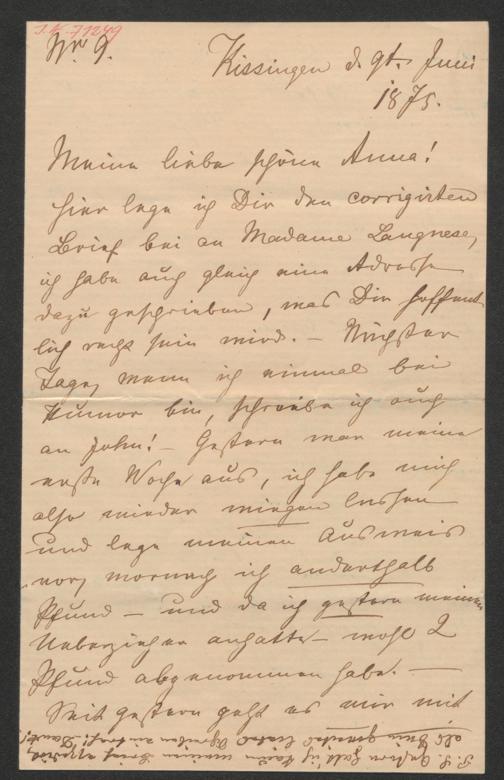 J.N. 71249
Nr 9.
Kissingen d. 9t. Juni
1875.
Meine liebe schöne Anna!
hier lege ich Dir den corrigirten
Brief bei an Madame Langnese,
ich habe auch gleich eine Adresse
dazu geschrieben, was Dir hoffent
lich recht sein wird. — Nächster
Tage, wenn ich einmal bei
Humor bin, schreibe ich auch
an John! — Gestern war meine
erste Woche aus, ich habe mich
also wieder wiegen lassen
und lege meinen Ausweis
vor, wornach ich anderthalb
Pfund — und da ich gestern meinen
Ueberzieher anhatte — wohl 2
Pfund abgenommen habe. —
Seit gestern geht es mir mit
P.S. Gestern hatt' ich kaum meinen Brief expedirt,
als Dein zweites liebes Schreiben eintraf! Dank!